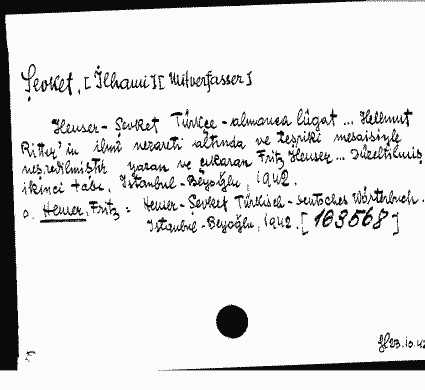 Şevket, [İlhami] [Mitverfasser]
Heuser-Şevket Türkçe-almanca lûgat ... Hellmut
Ritter'in ilmî nezareti altında ve teşriki mesaisiyle
neşredilmiştir yazan ve çıkaran Fritz Heuser ... Düzeltilmiş
ikinci tabı. Istanbul-Beyoğlu, 1942.
s. Heuser, Fritz: Heuser-Şevket Türkisch-deutsches Wörterbuch.
Istanbul-Beyoğlu, 1942. [163568]
23.10.42